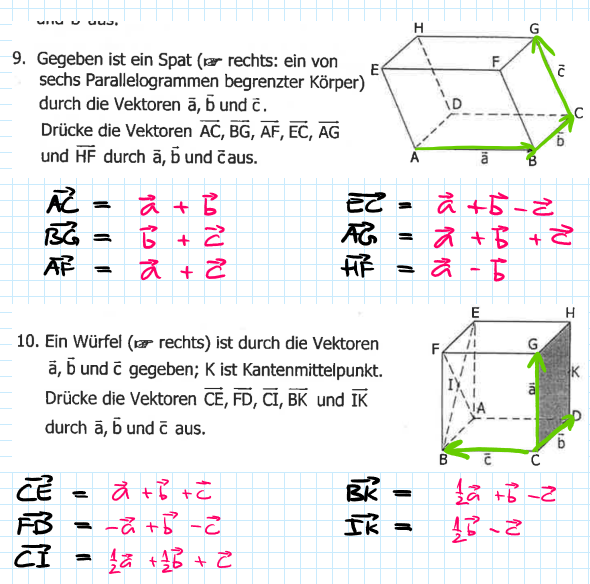 9. Gegeben ist ein Spat (☞ rechts: ein von
sechs Parallelogrammen begrenzter Körper)
durch die Vektoren a⃗, b⃗ und c⃗.
Drücke die Vektoren AC⃗, BG⃗, AF⃗, EC⃗, AG⃗
und HF⃗ durch a⃗, b⃗ und c⃗ aus.
H G
E F c⃗
D C
b⃗
A a⃗ B
AC⃗ = a⃗ + b⃗ EC⃗ = a⃗ + b⃗ - c⃗
BG⃗ = b⃗ + c⃗ AG⃗ = a⃗ + b⃗ + c⃗
AF⃗ = a⃗ + c⃗ HF⃗ = a⃗ - b⃗
10. Ein Würfel (☞ rechts) ist durch die Vektoren
a⃗, b⃗ und c⃗ gegeben; K ist Kantenmittelpunkt.
Drücke die Vektoren CE⃗, FD⃗, CI⃗, BK⃗ und IK⃗
durch a⃗, b⃗ und c⃗ aus.
E H
F G
I a⃗ K
A D
b⃗
B c⃗ C
CE⃗ = a⃗ + b⃗ + c⃗ BK⃗ = ½a⃗ + b⃗ - c⃗
FD⃗ = -a⃗ + b⃗ - c⃗ IK⃗ = ½b⃗ - c⃗
CI⃗ = ½a⃗ + ½b⃗ + c⃗